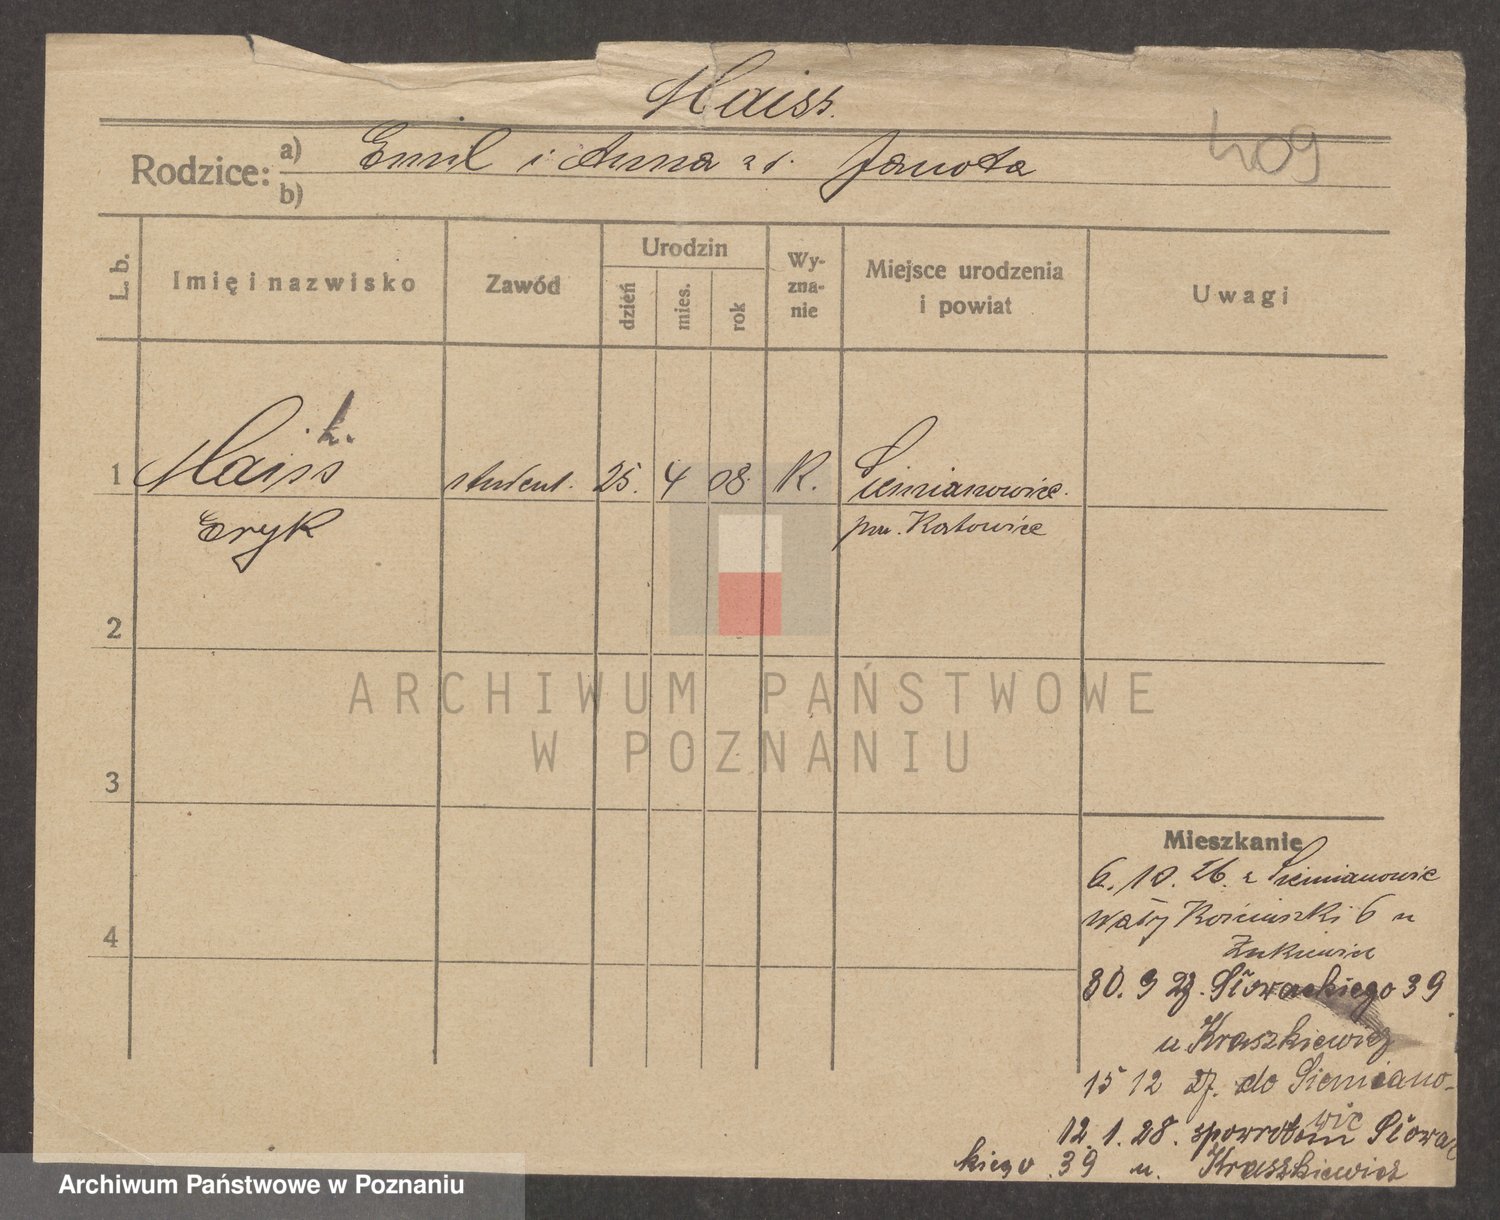 Haiss.
Rodzice: a) Emil i Anna z d. Janota
b)
409
L. b. Imię i nazwisko Zawód Urodzin dzień mies. rok Wyznanie Miejsce urodzenia i powiat Uwagi
k.
1 Haiss student. 25. 4 08. R. Siemianowice.
Eryk pow. Katowice
2
ARCHIWUM PAŃSTWOWE
W POZNANIU
3
Mieszkanie
6. 10. 26. z Siemianowic
4 Wały 6 u
30. 9 27. Słowackiego 39
u Kraszkiewicz
15 12 27. do Siemiano-
wic
12. 1. 28. spowrotem Słowac
kiego 39 u. Kraszkiewicz
Archiwum Państwowe w Poznaniu